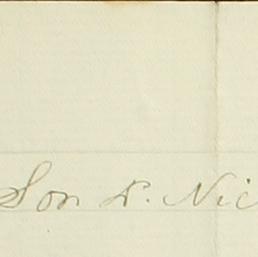 Son R. Nic